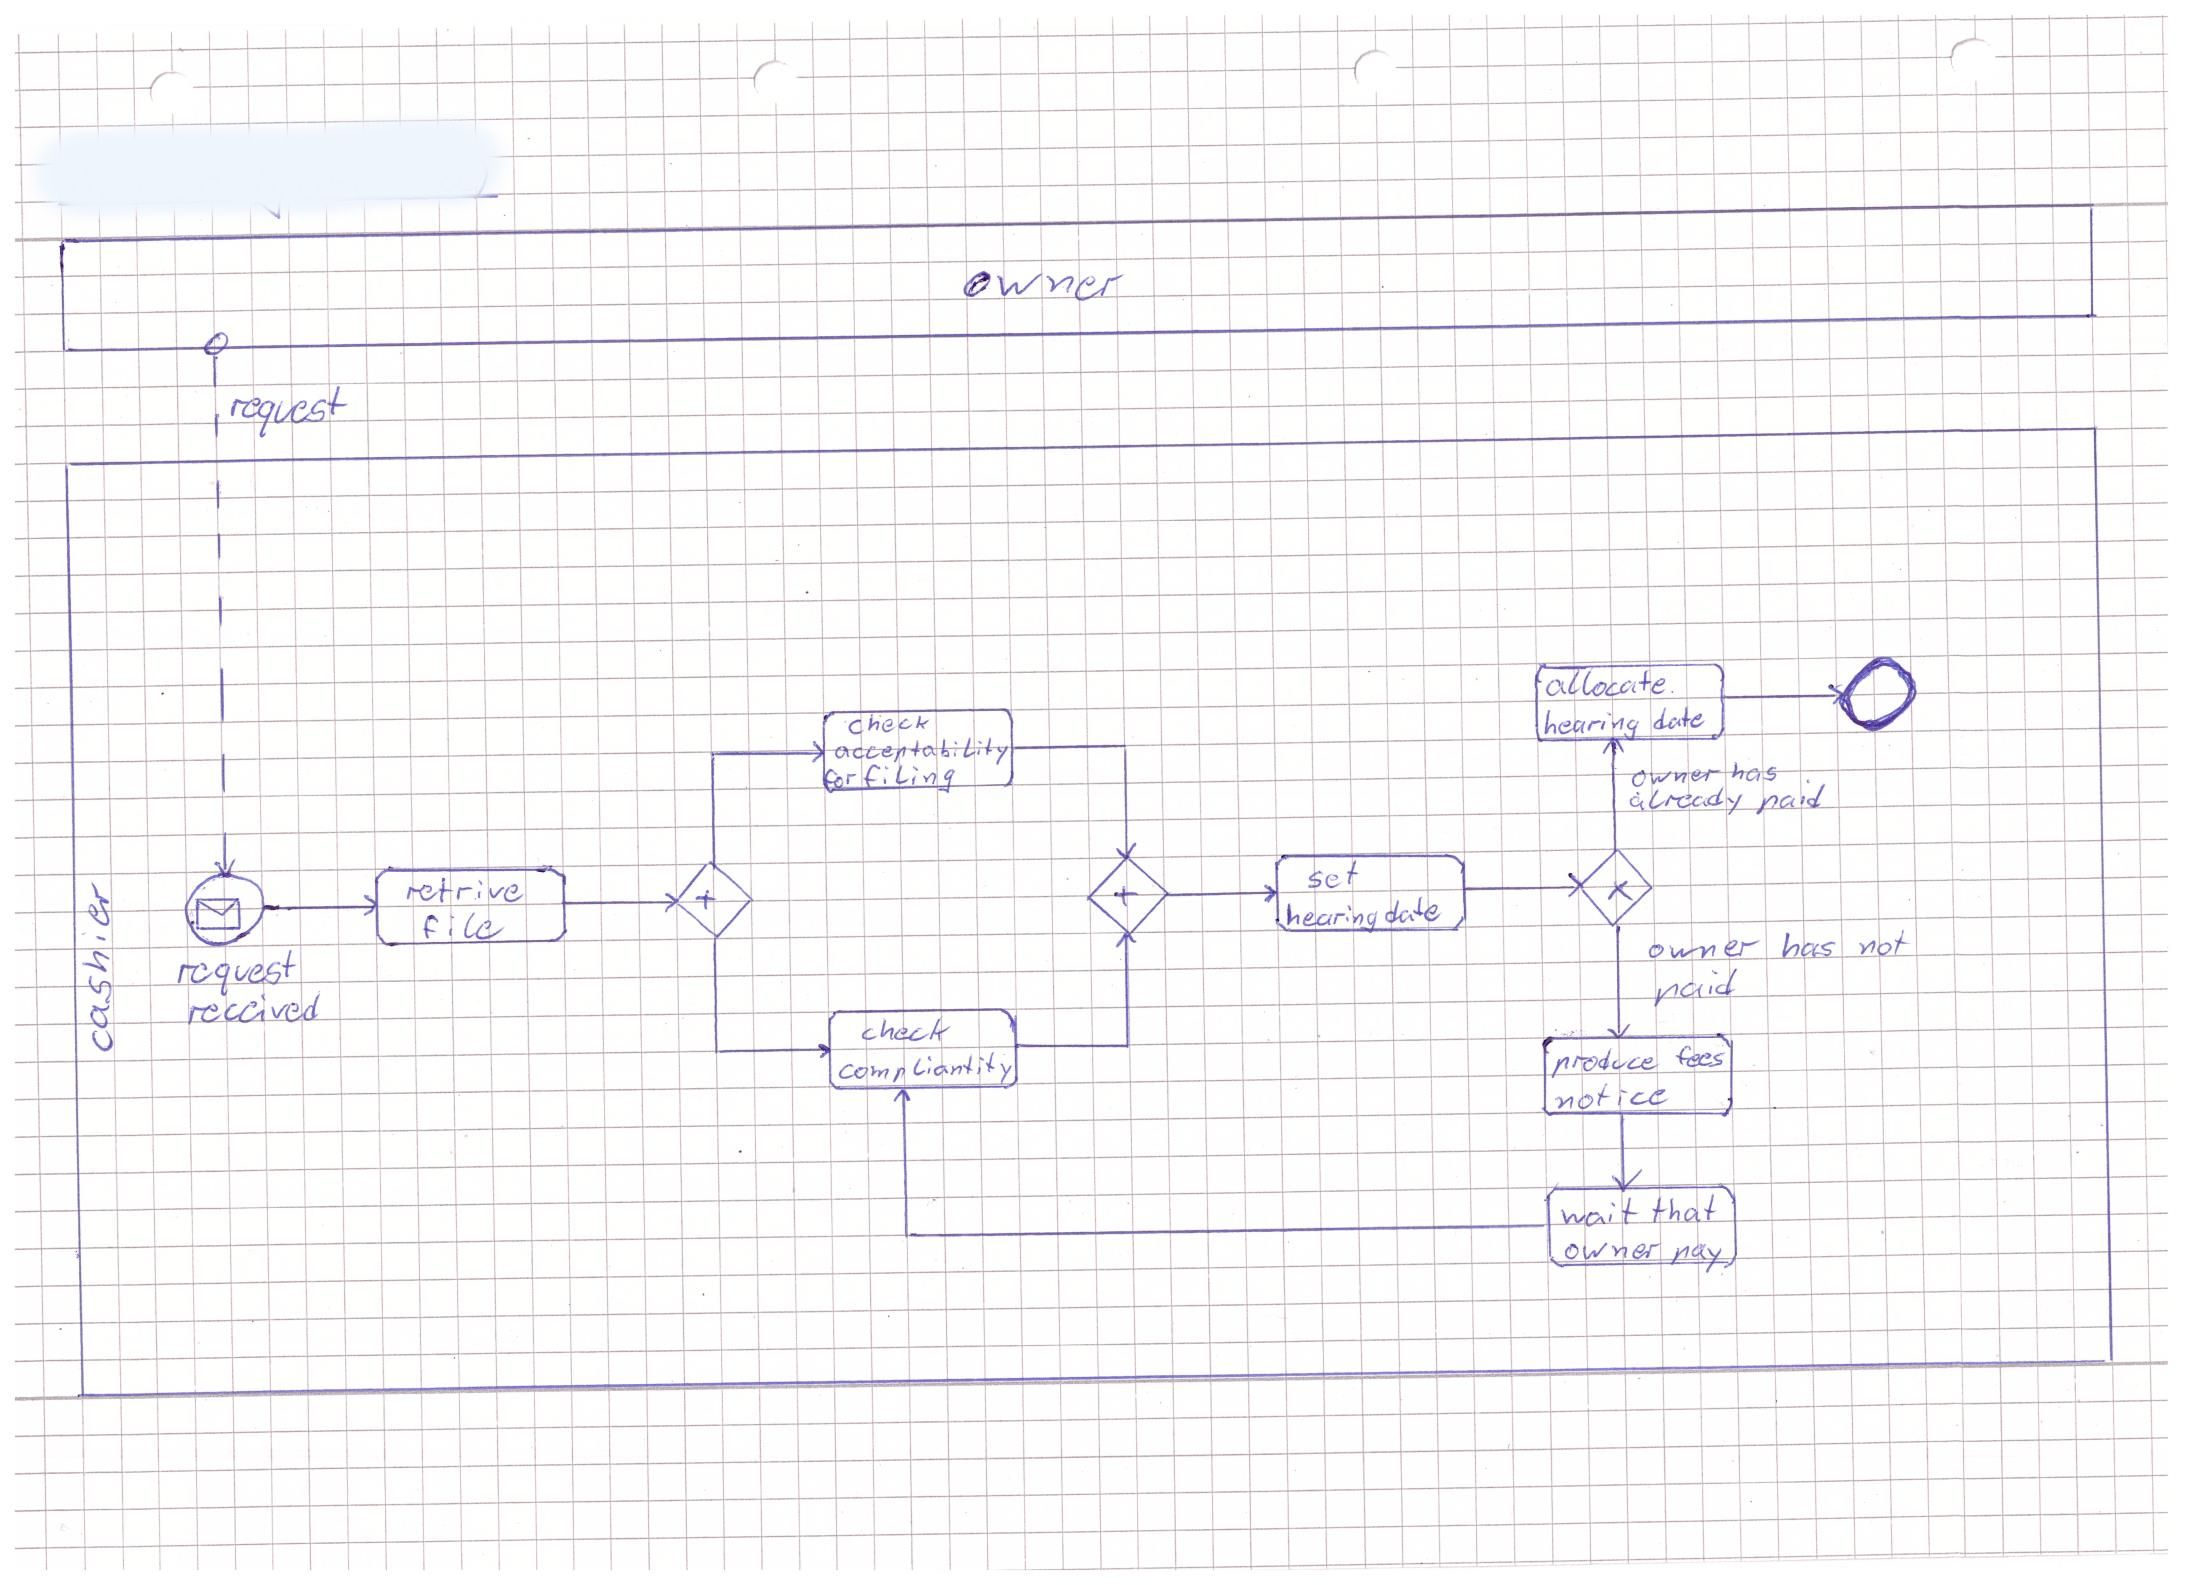 owner
request
cashier
request
received
retrive
file
check
acceptability
for filing
check
compliantity
set
hearing date
allocate
hearing date
owner has
already paid
owner has not
paid
produce fees
notice
wait that
owner pay